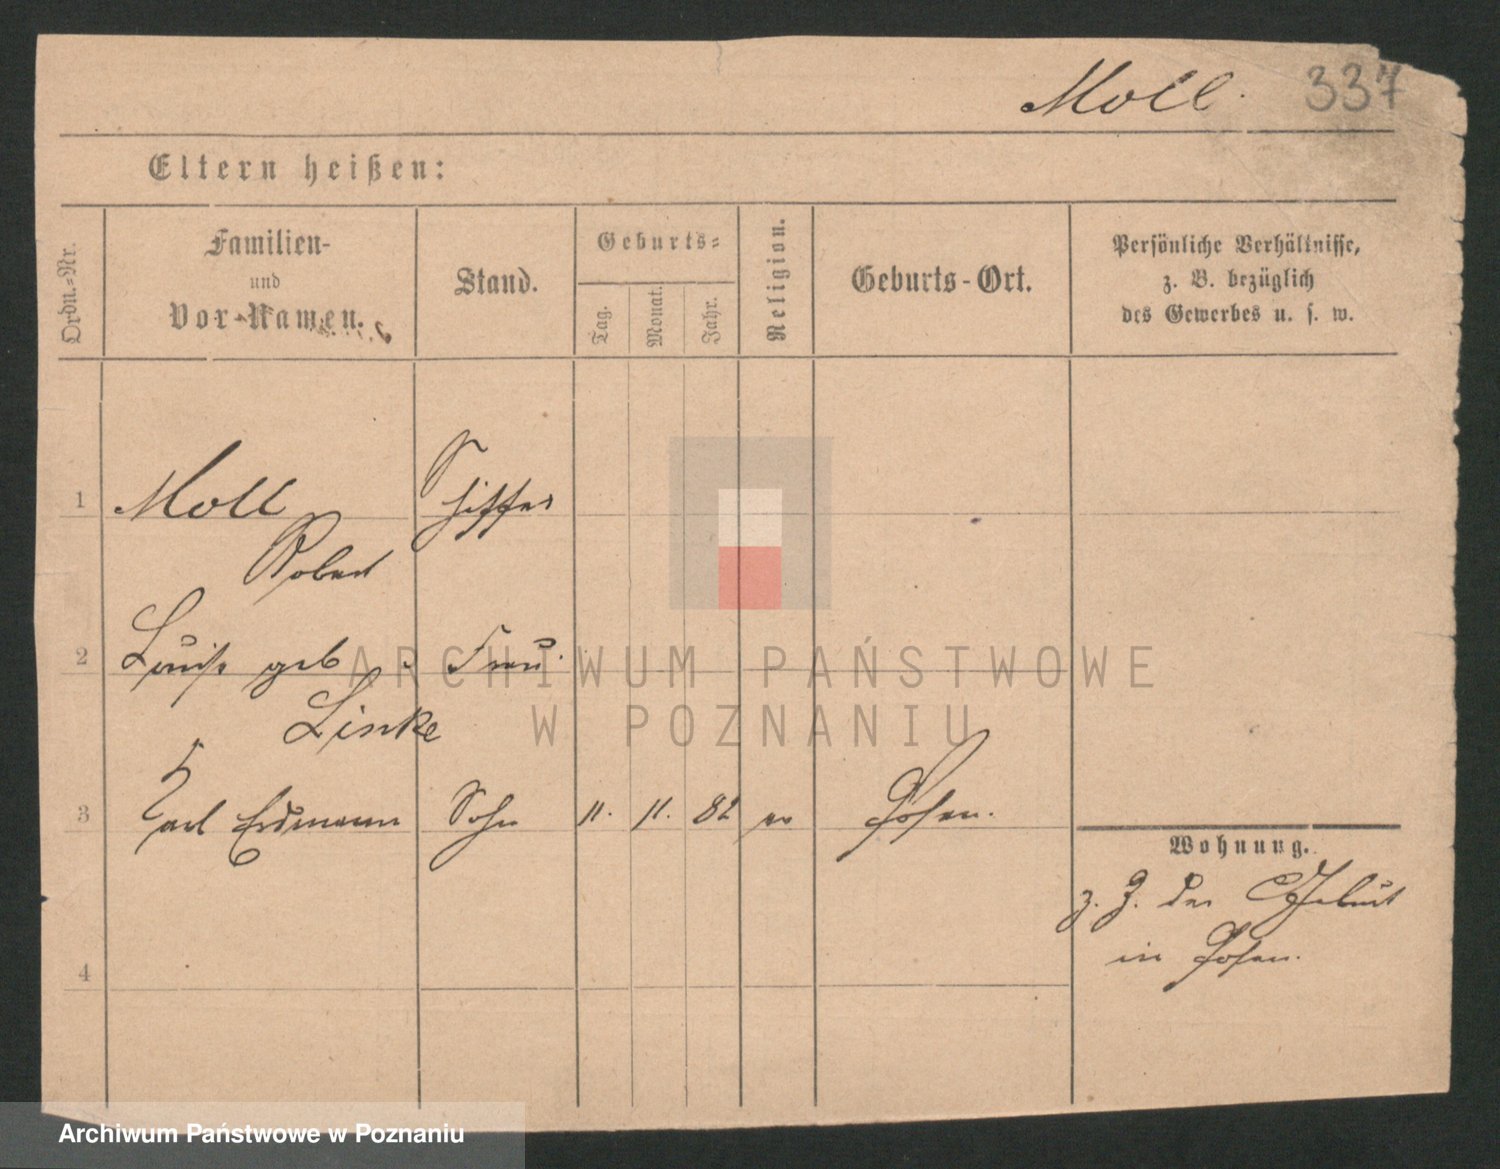 Moll.
337
Eltern heißen:
Ordn.-Nr.
Familien-
und
Vor-Namen.
Stand.
Geburts-
Tag.
Monat.
Jahr.
Religion.
Geburts-Ort.
Persönliche Verhältnisse,
z. B. bezüglich
des Gewerbes u. s. w.
1 Moll Schiffer
Robert
2 Louise geb. Frau.
Linke
3 Carl Erdmann Sohn 11. 11. 82 ev Posen.
Wohnung.
z. Z. der Geburt
in Posen.
4
ARCHIWUM PAŃSTWOWE
W POZNANIU
Archiwum Państwowe w Poznaniu